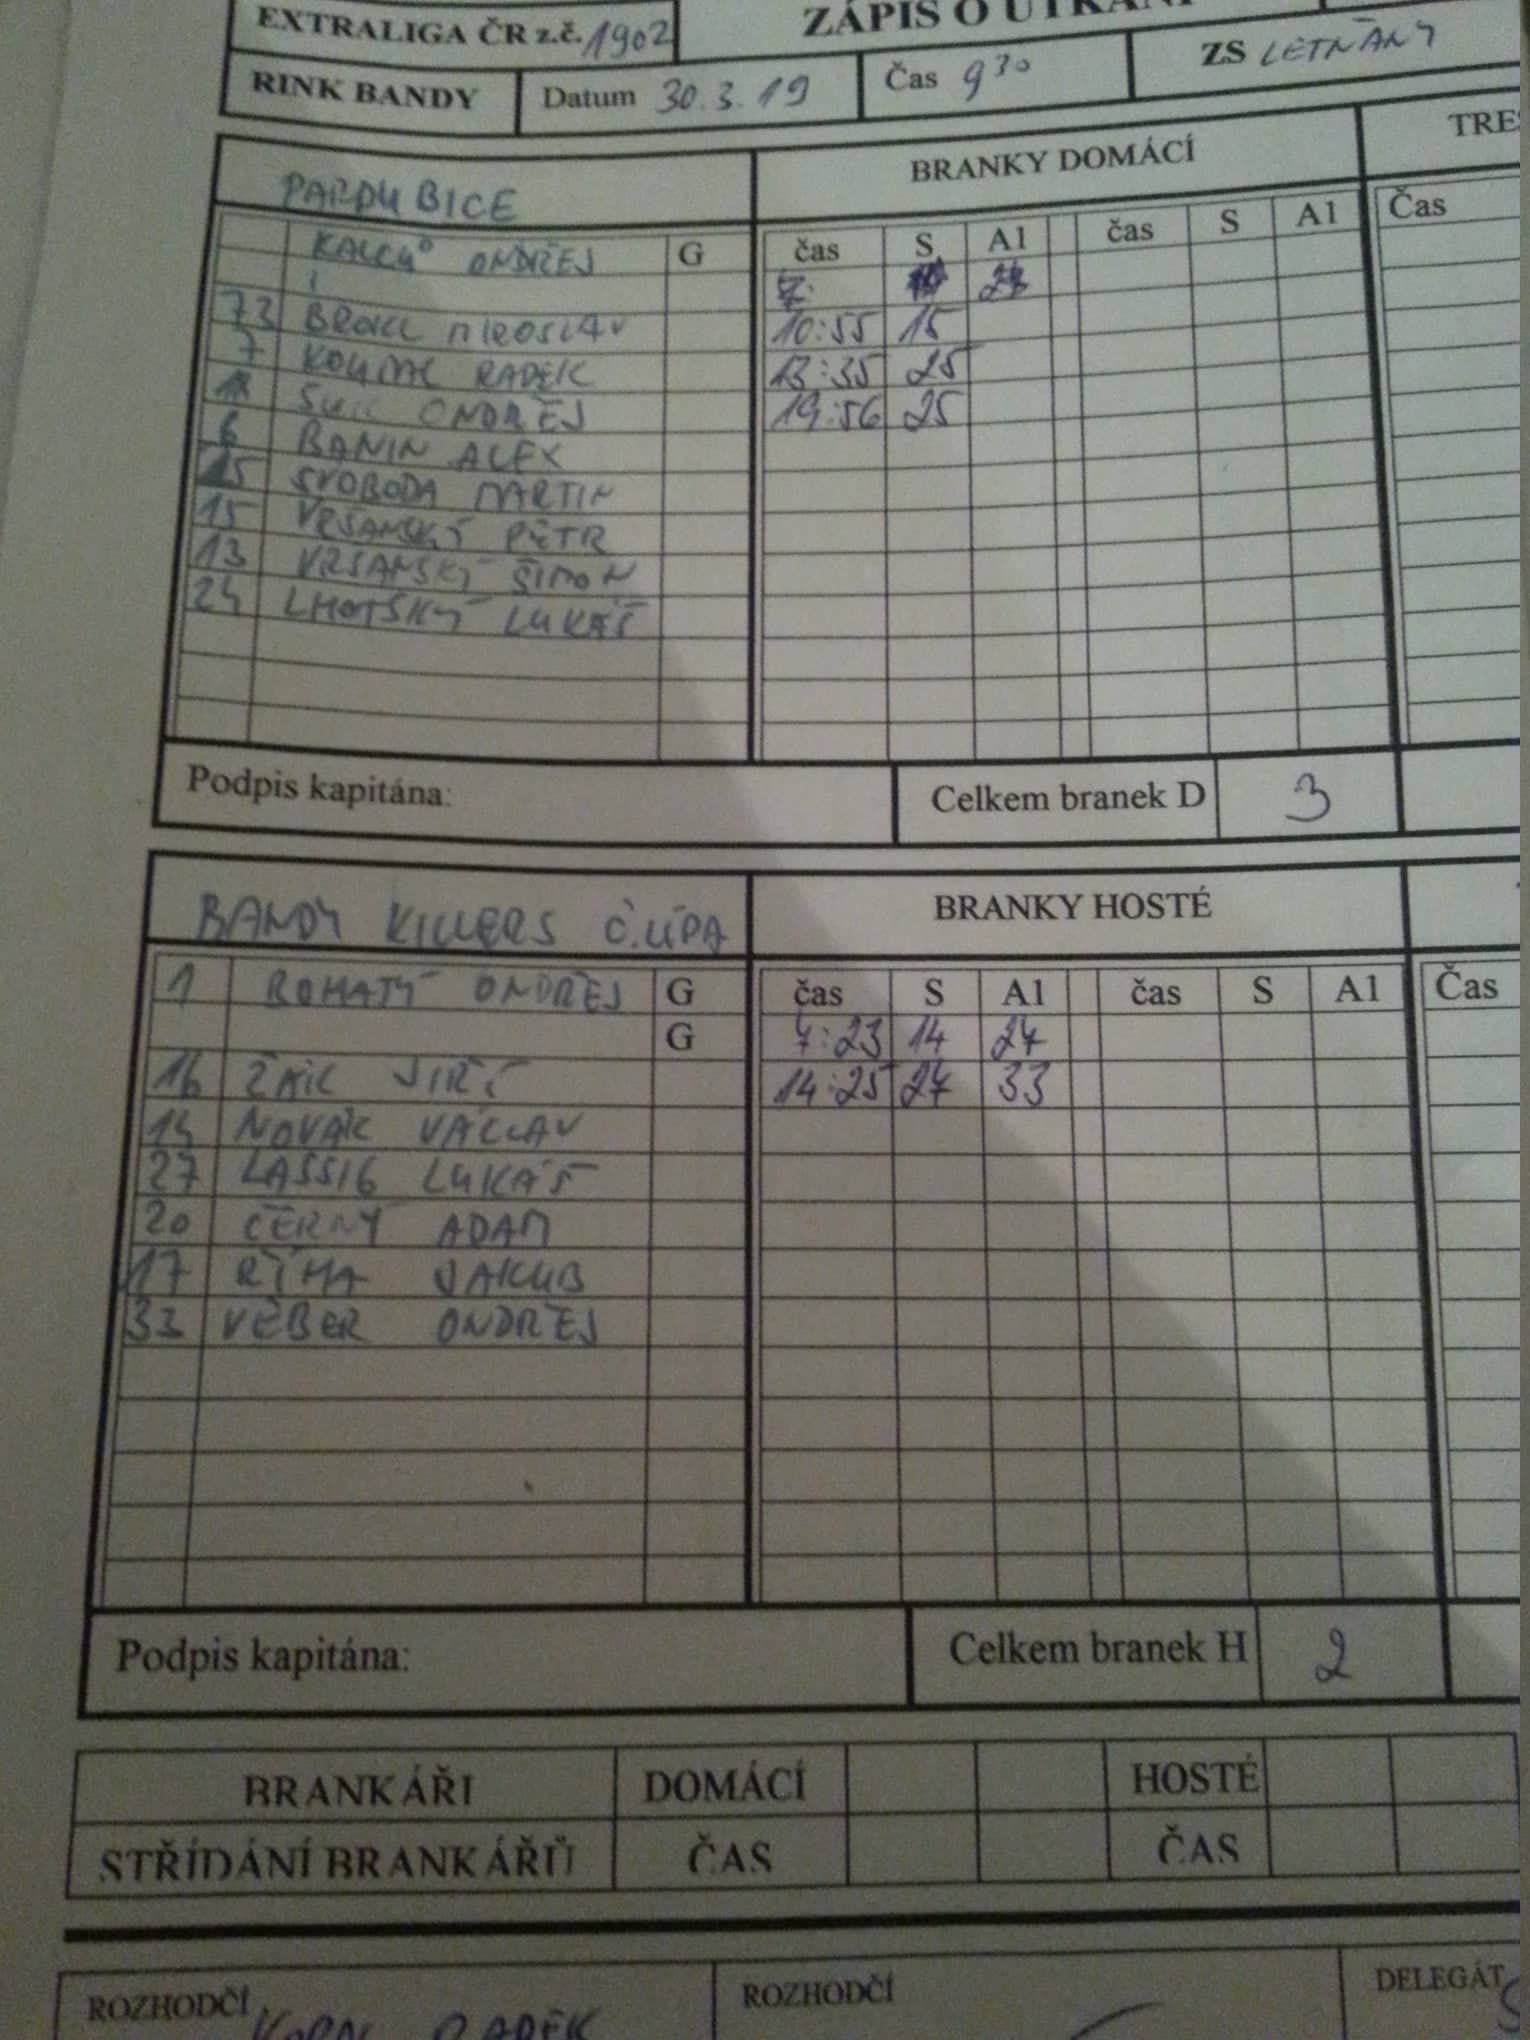 EXTRALIGA ČR z.č. 1902
ZÁPIS O UTKÁNÍ
RINK BANDY Datum 30.3.19 Čas 9 30 ZS LETŇANY
PARDUBICE BRANKY DOMÁCÍ TRES
ONDŘEJ G čas S A1 čas S A1 Čas
73 MIROSLAV 10:55 15
7 RADEK 13:35 25
ONDŘEJ 19:56 25
6 BANIN ALEX
25 SVOBODA MARTIN
15 VRŠANSKÝ PETR
13 VRŠANSKÝ ŠIMON
24 LHOTSKÝ LUKÁŠ
Podpis kapitána: Celkem branek D 3
BANDY KILLERS Č.LÍPA BRANKY HOSTÉ
1 ROHATÝ ONDŘEJ G čas S A1 čas S A1 Čas
G 7:23 14 27
16 ŽÁK JIŘÍ 14:25 27 33
14 NOVÁK VÁCLAV
27 LASSIG LUKÁŠ
20 ČERNÝ ADAM
17 ŘÍHA JAKUB
33 VEBER ONDŘEJ
Podpis kapitána: Celkem branek H 2
BRANKÁŘI DOMÁCÍ HOSTÉ
STŘÍDÁNÍ BRANKÁŘŮ ČAS ČAS
ROZHODČÍ RADEK ROZHODČÍ DELEGÁT